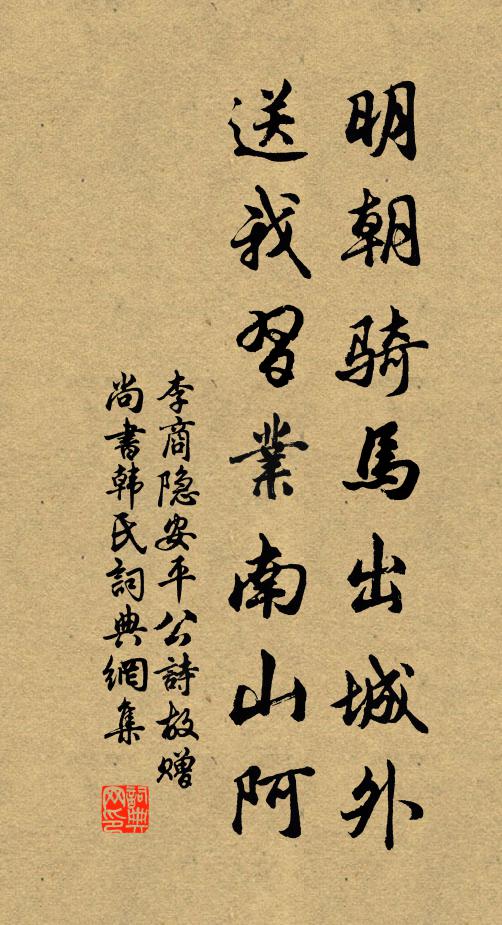 明朝騎馬出城外
送我習業南山阿
李商隐安平公詩故贈
尚書韩氏詞典網集
詞典网印